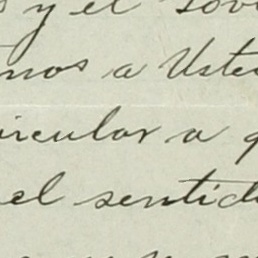 y el
mos a Uste
ircular a q
el sentid